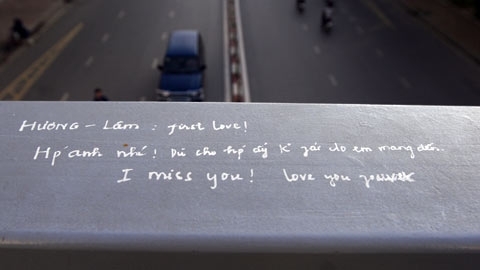 HƯƠNG - Lâm : first love!
Hp' anh nhé! Dù cho hp' ấy k' phải do em mang đến..
I miss you! love you